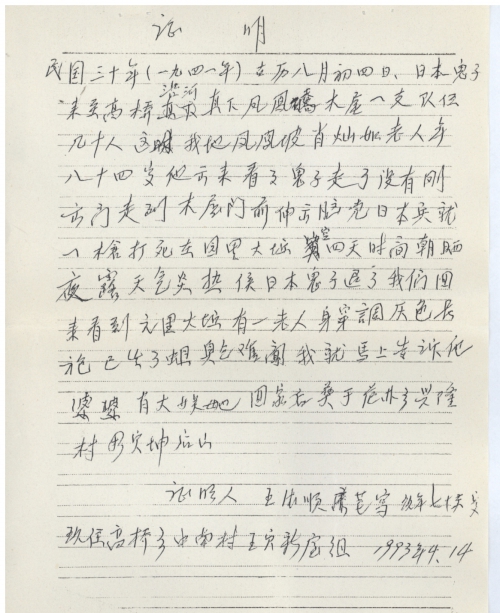 证 明
民国三十年(一九四一年)古历八月初四日、日本鬼子
来至高桥 其下凤凰 大屋一支队伍
几十人 我地凤凰坡肖灿如老人年
八十四岁他云来看了鬼子走了没有刚
云门走到木屋门前伸云脑壳日本兵就
一枪打死在园里大坵 四天时间朝晒
夜露天气炎热侯日本鬼子退了我们回
来看到园里大坵有一老人身穿調灰色长
袍已生了蛆臭气难闻我就馬上告诉他
婆婆 有大 她 回家 葬于 兴隆
村 坤后山
证明人 王佑顺 现年七十 岁
现住高桥乡中南村王家新屋组 1993年4.14